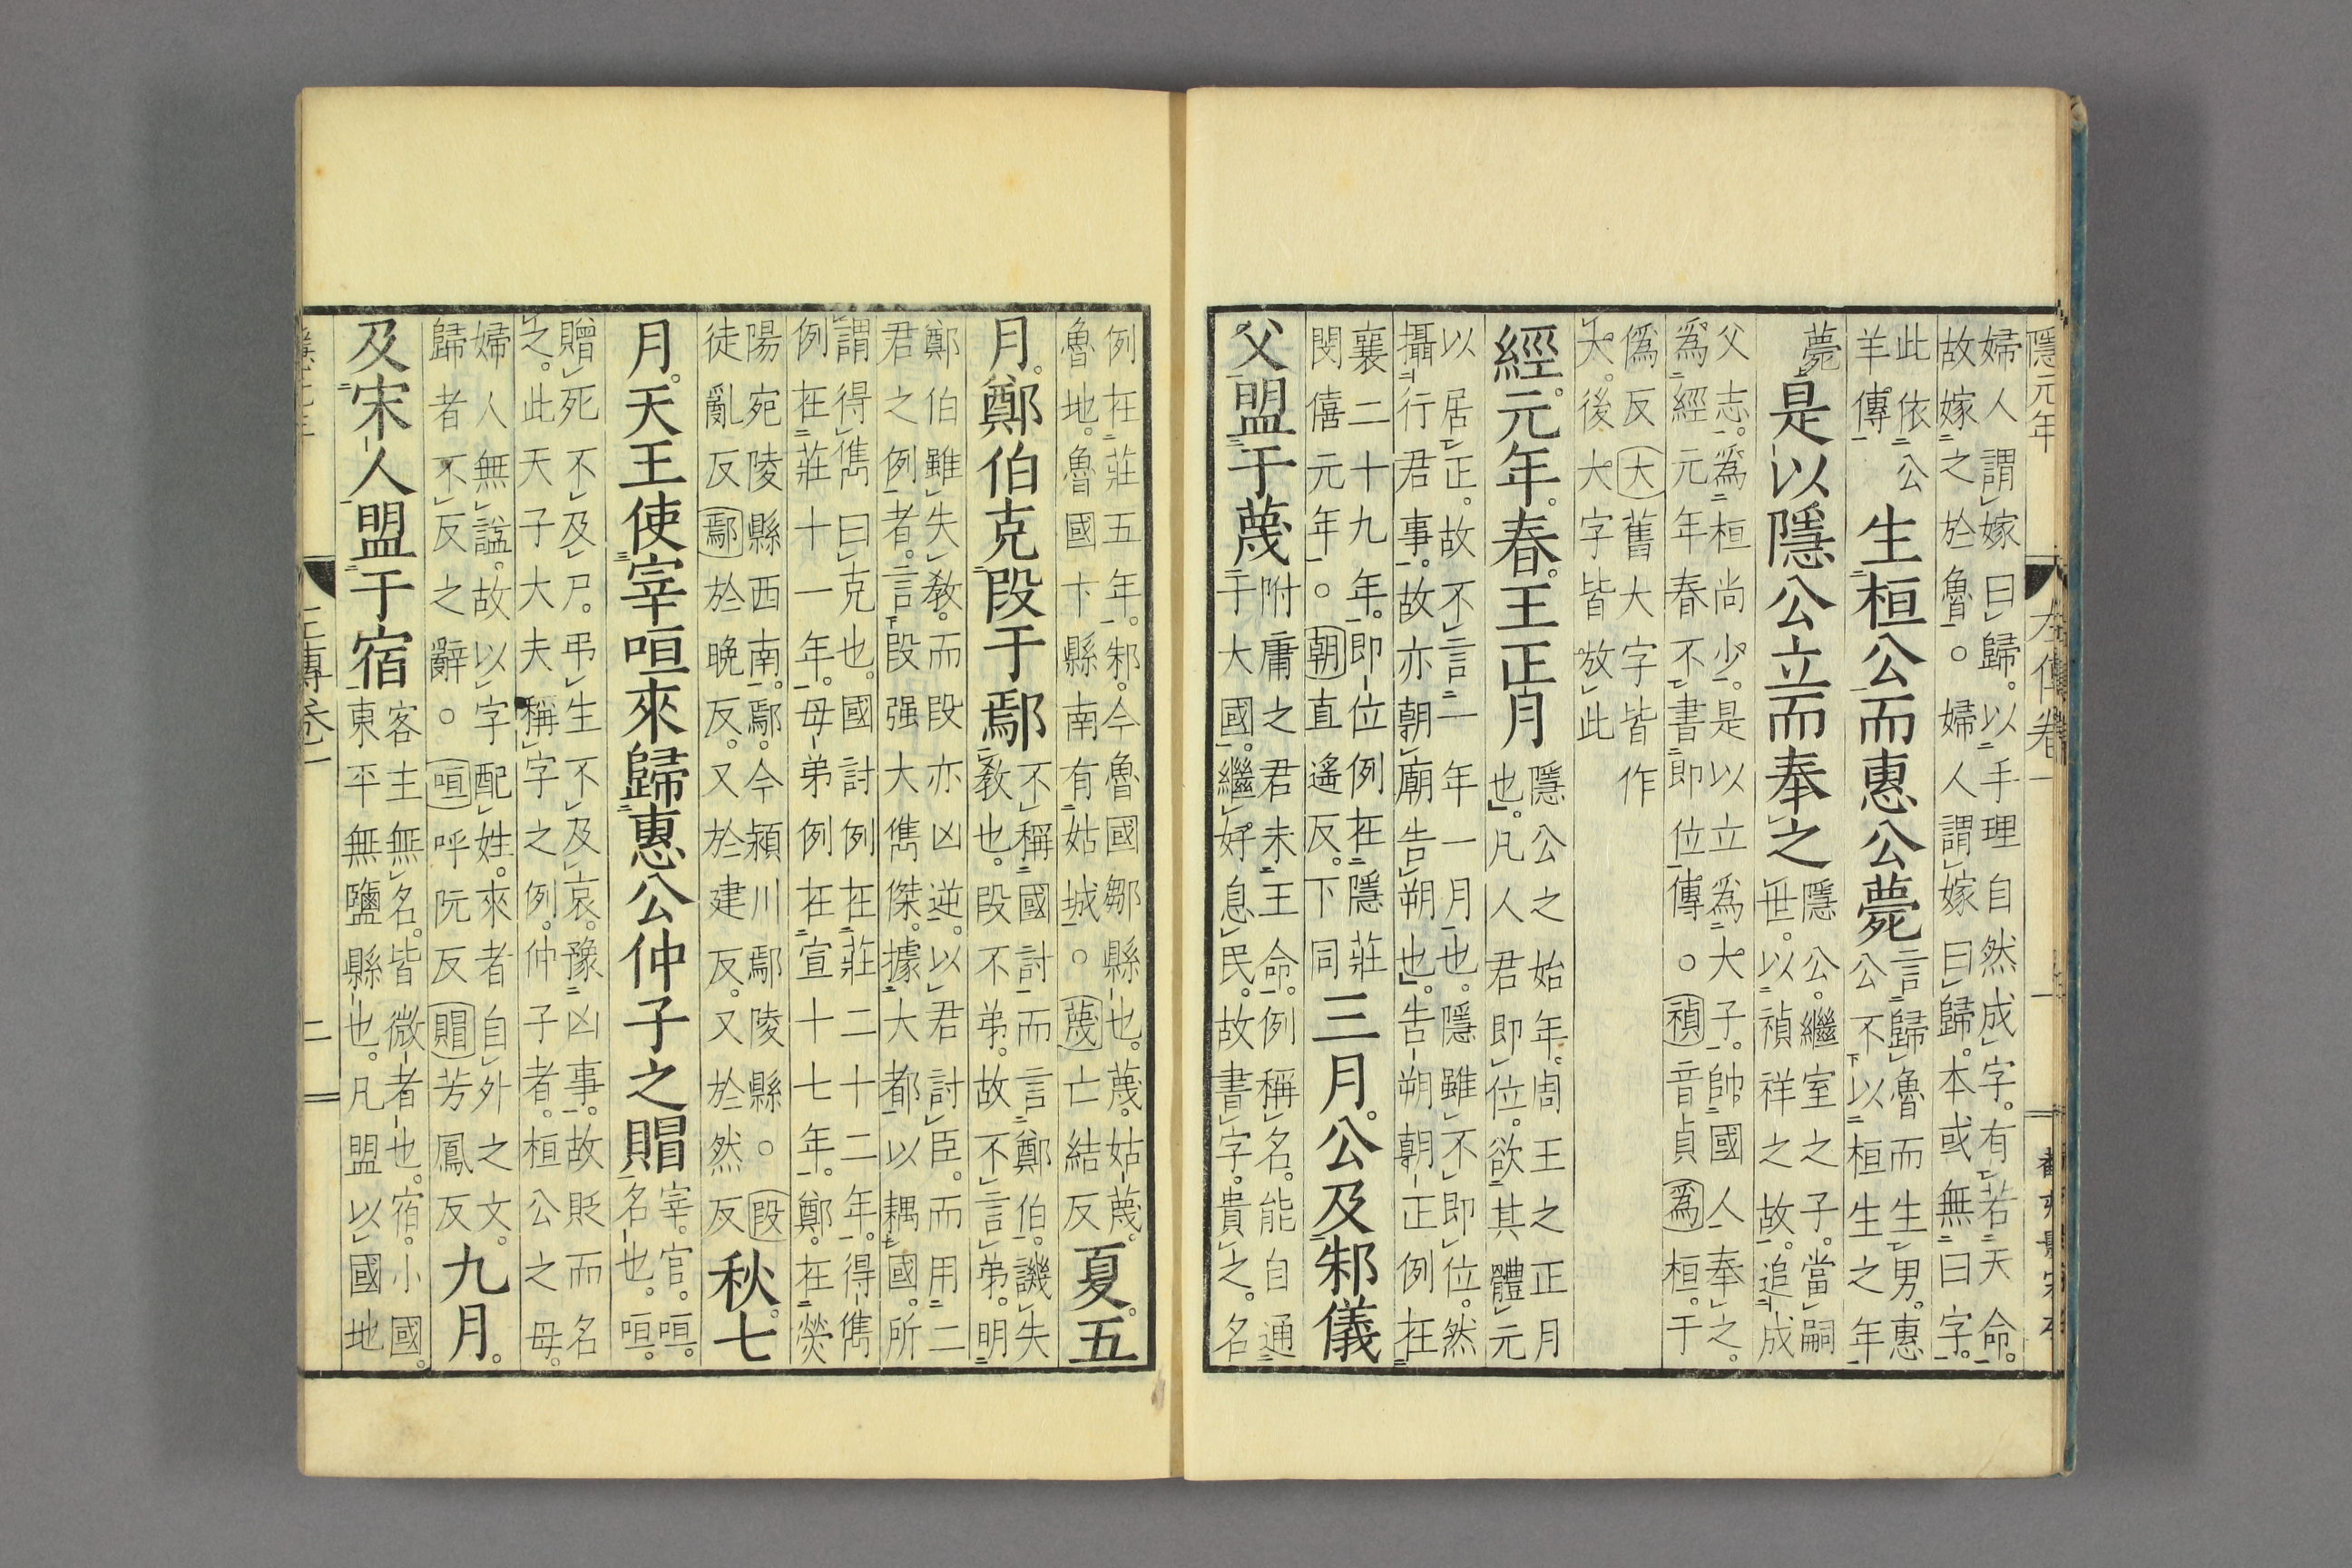 隱元年 左傳卷一 一
婦人謂嫁曰歸。以手理自然成字。有若天命。
故嫁之於魯。○婦人謂嫁曰歸。本或無曰字。
此依公羊傳生桓公而惠公薨言歸魯而生男。惠公不以桓生之年
薨是以隱公立而奉之隱公。繼室之子。當嗣世。以禎祥之故。追成
父志。爲桓尚少。是以立爲大子。帥國人奉之。
爲經元年春不書即位傳。○禎音貞爲桓。于
僞反大舊大字皆作
大。後大字皆放此
經。元年。春。王正月隱公之始年。周王之正月也。凡人君即位。欲其體元
以居正。故不言一年一月也。隱雖不即位。然
攝行君事。故亦朝廟告朔也。告朔朝正例在
襄二十九年。即位例在隱莊閔僖元年。○朝直遙反。下同三月。公及邾儀
父盟于蔑附庸之君未王命。例稱名。能自通于大國。繼好息民。故書字。貴之。名
例在莊五年。邾。今魯國鄒縣也。蔑。姑蔑。魯地。魯國卞縣南有姑城。○蔑亡結反夏。五
月。鄭伯克段于鄢不稱國討而言鄭伯。譏失教也。段不弟。故不言弟。明
鄭伯雖失教。而段亦凶逆。以君討臣。而用二
君之例者。言段强大雋傑。據大都以耦國。所
謂得雋曰克也。國討例在莊二十二年。得雋
例在莊十一年。母弟例在宣十七年。鄭。在滎
陽宛陵縣西南。鄢。今潁川鄢陵縣。○段徒亂反鄢於晚反。又於建反。又於然反秋。七
月。天王使宰咺來歸惠公仲子之賵宰。官。咺。名也。咺。
贈死不及尸。弔生不及哀。豫凶事。故貶而名
之。此天子大夫稱字之例。仲子者。桓公之母。
婦人無謚。故以字配姓。來者自外之文。歸者不反之辭。○咺呼阮反賵芳鳳反九月。
及宋人盟于宿客主無名。皆微者也。宿。小國。東平無鹽縣也。凡盟以國地
二